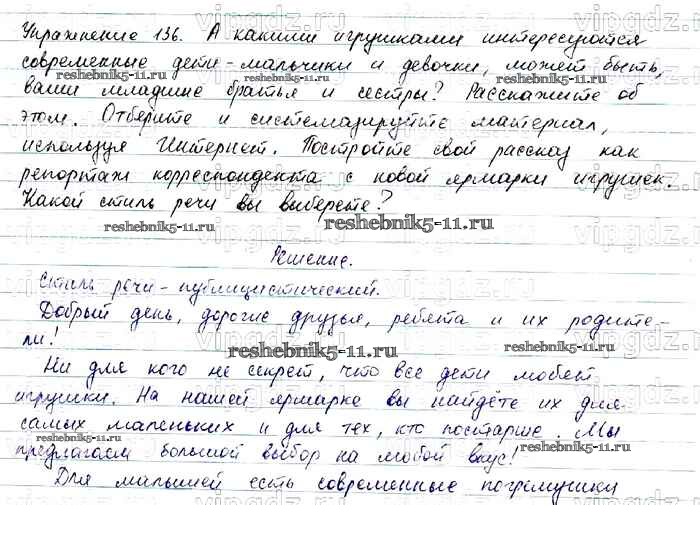 Упражнение 136. А какими игрушками интересуются
современные дети - мальчики и девочки, может быть,
ваши младшие братья и сестры? Расскажите об
этом. Отберите и систематизируйте материал,
используя Интернет. Постройте свой рассказ как
репортаж корреспондента с новой ярмарки игрушек.
Какой стиль речи вы выберете?
Решение.
Стиль речи - публицистический.
Добрый день, дорогие друзья, ребята и их родите-
ли!
Ни для кого не секрет, что все дети любят
игрушки. На нашей ярмарке вы найдёте их для
самых маленьких и для тех, кто постарше. Мы
предлагаем большой выбор на любой вкус!
Для малышей есть современные погремушки
vipgdz.ru
reshebnik5-11.ru